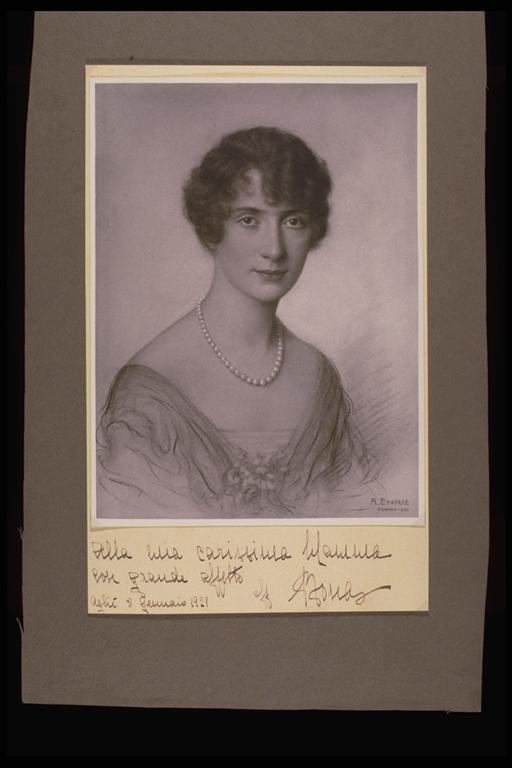 A. ENRIE
TORINO
Alla mia carissima Mamma
con grande affetto
Agliè 8 Gennaio 1921